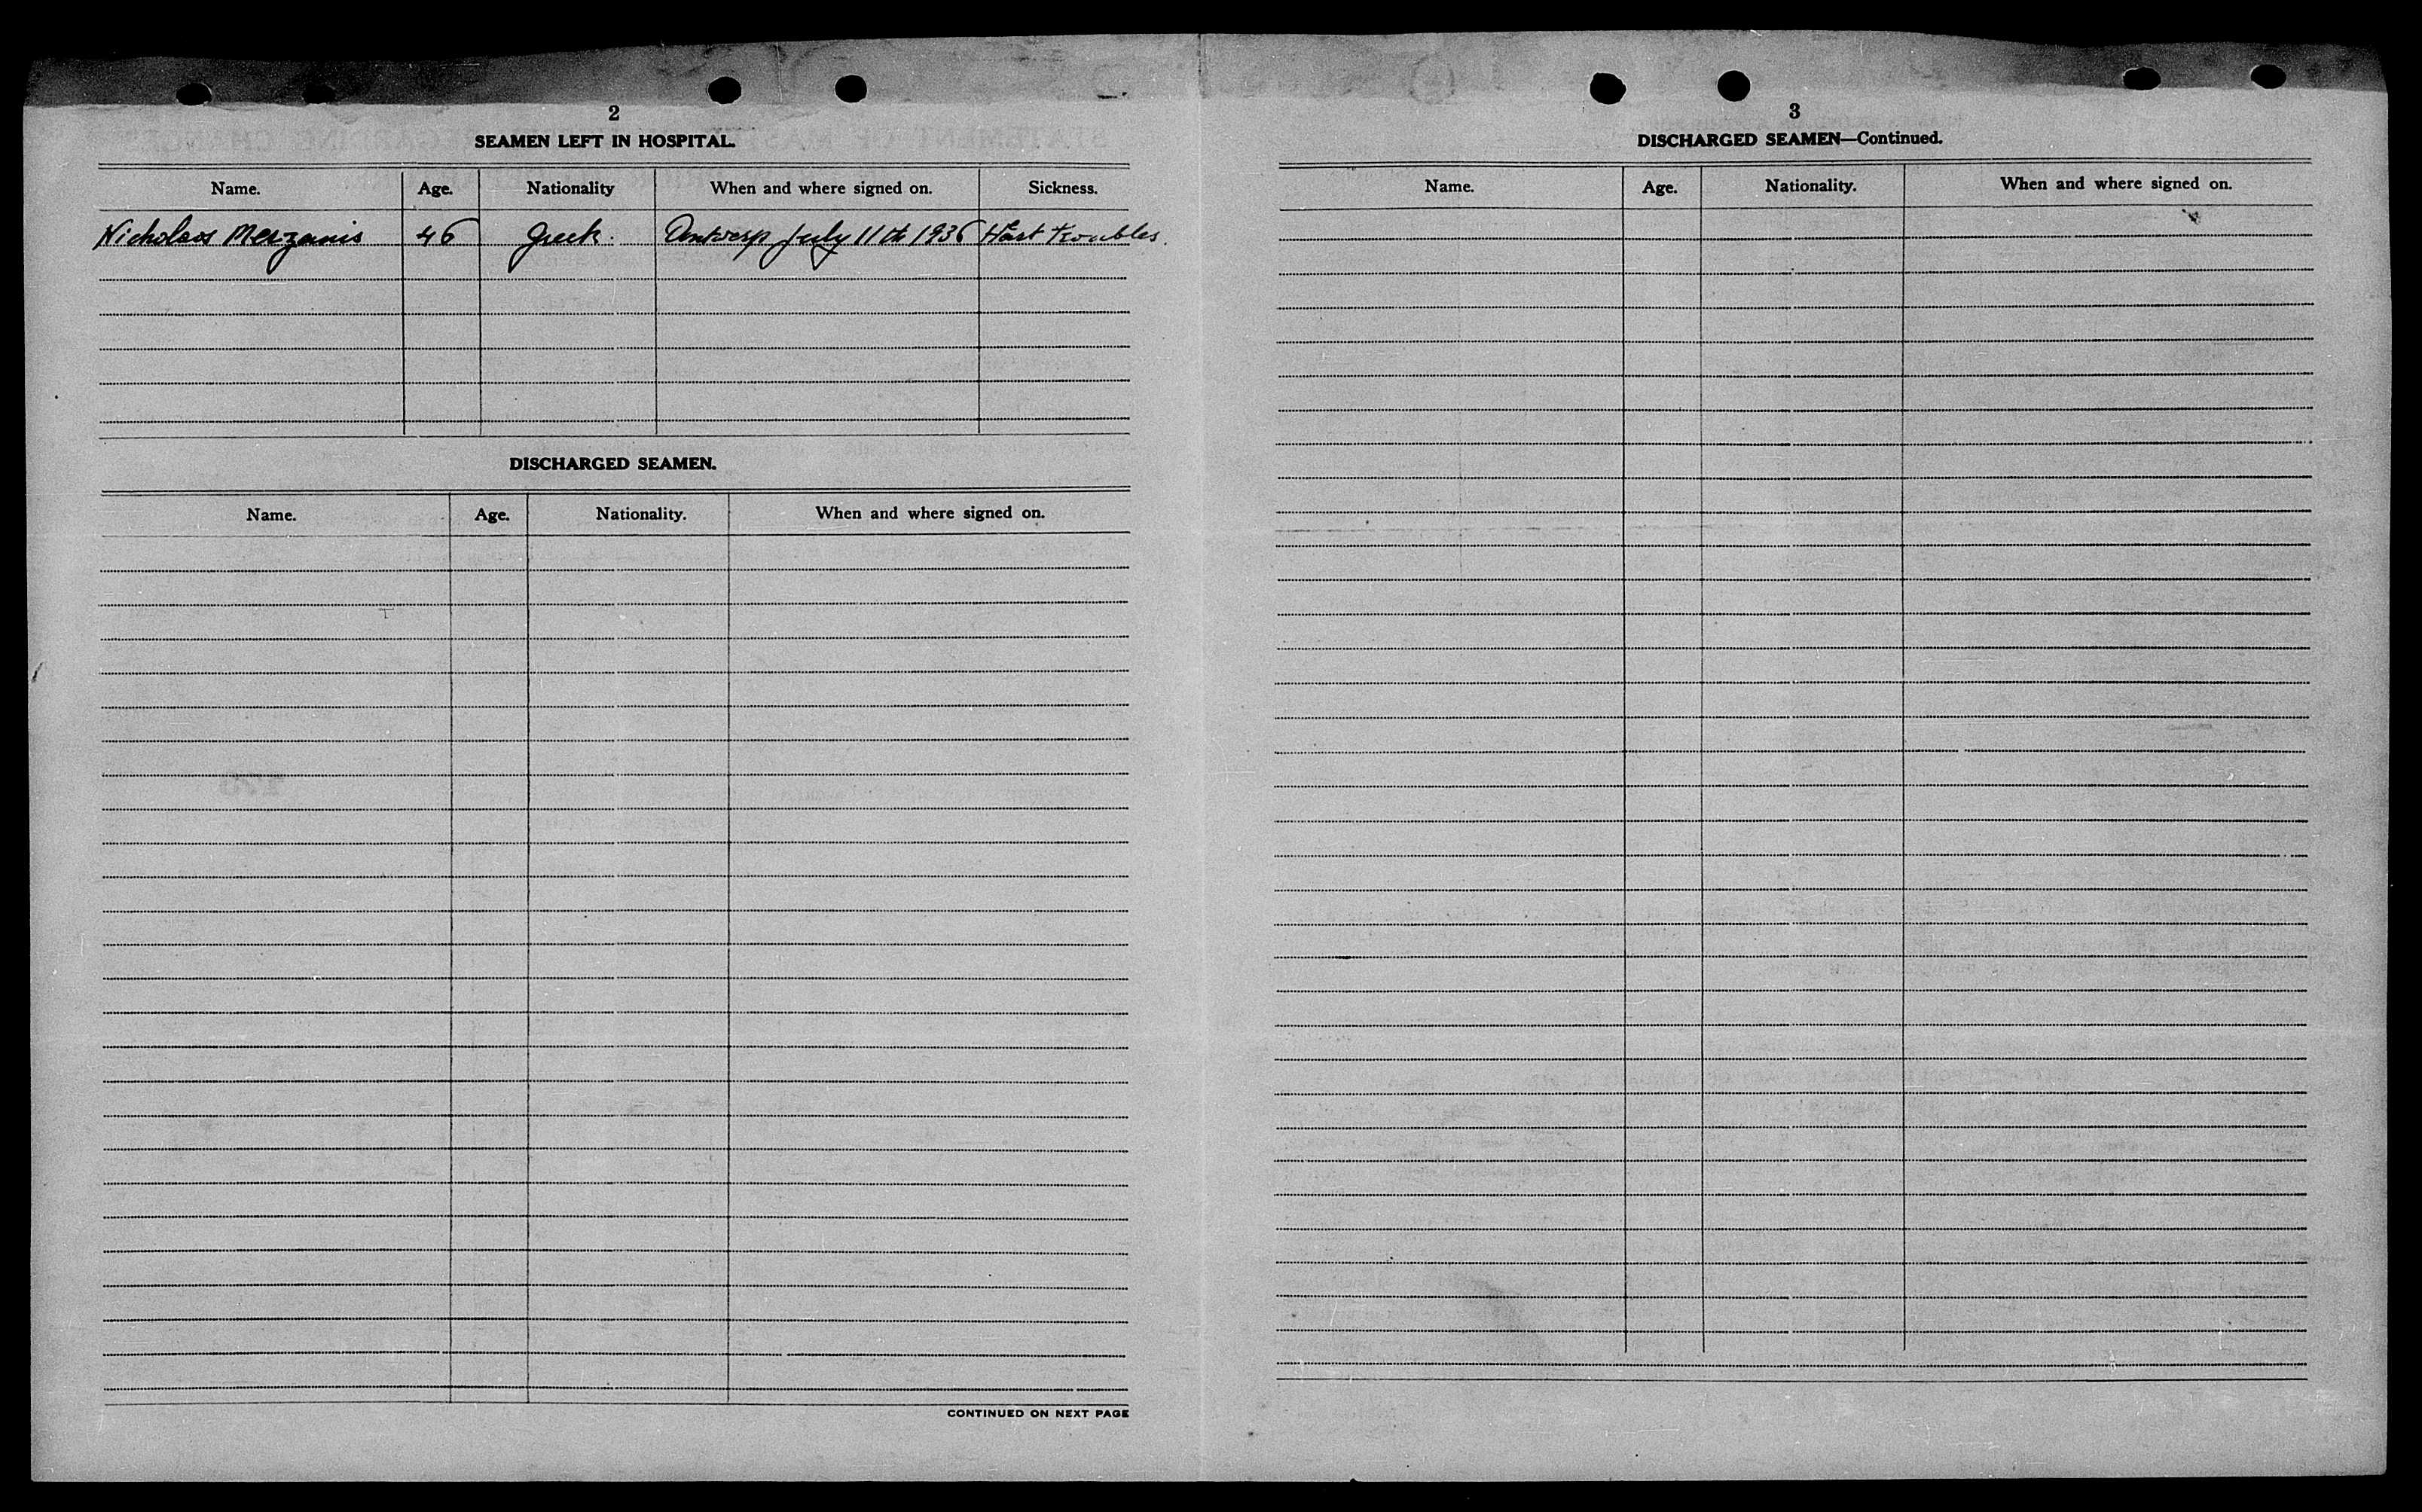 2
SEAMEN LEFT IN HOSPITAL.
Name. Age. Nationality When and where signed on. Sickness.
Nicholaos Merzanis 46 Greek. Antwerp July 11th 1936 Hart troubles.
DISCHARGED SEAMEN.
Name. Age. Nationality. When and where signed on.
CONTINUED ON NEXT PAGE
3
DISCHARGED SEAMEN—Continued.
Name. Age. Nationality. When and where signed on.